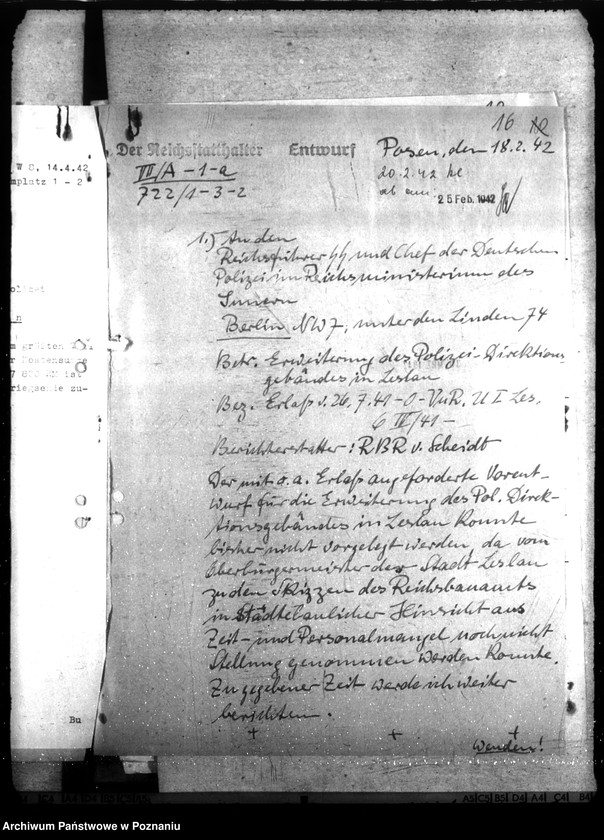 W S, 14.4.42
mplatz 1 - 2
olizei
n
m größten
r Kostensumme
ist
riegsende zu-
Bu
16
Der Reichsstatthalter Entwurf Posen, den 18.2.42
VII/A-1-a
722/1-3-2
20.2.42
ab am:
25 Feb. 1942
1.) An den
Reichsführer SS und Chef der Deutschen
Polizei im Reichsministerium des
Innern
Berlin NW 7, unter den Linden 74
Betr. Erweiterung des Polizei-Direktions-
gebäudes in Leslau
Bez. Erlaß v. 26.7.41 - O-VuR. U I Les.
6 IV/41 -
Berichterstatter: RBR v. Scheidt
Der mit o.a. Erlaß angeforderte Vorent-
wurf für die Erweiterung des Pol. Direk-
tionsgebäudes in Leslau konnte
bisher nicht vorgelegt werden, da vom
Oberbürgermeister der Stadt Leslau
zu den Skizzen des Reichsbauamts
in städtebaulicher Hinsicht aus
Zeit- und Personalmangel noch nicht
Stellung genommen werden konnte.
Zu gegebener Zeit werde ich weiter
berichten.
+ + +
wenden!
A5 C5 B5 D4 A4 C4 B4
Archiwum Państwowe w Poznaniu